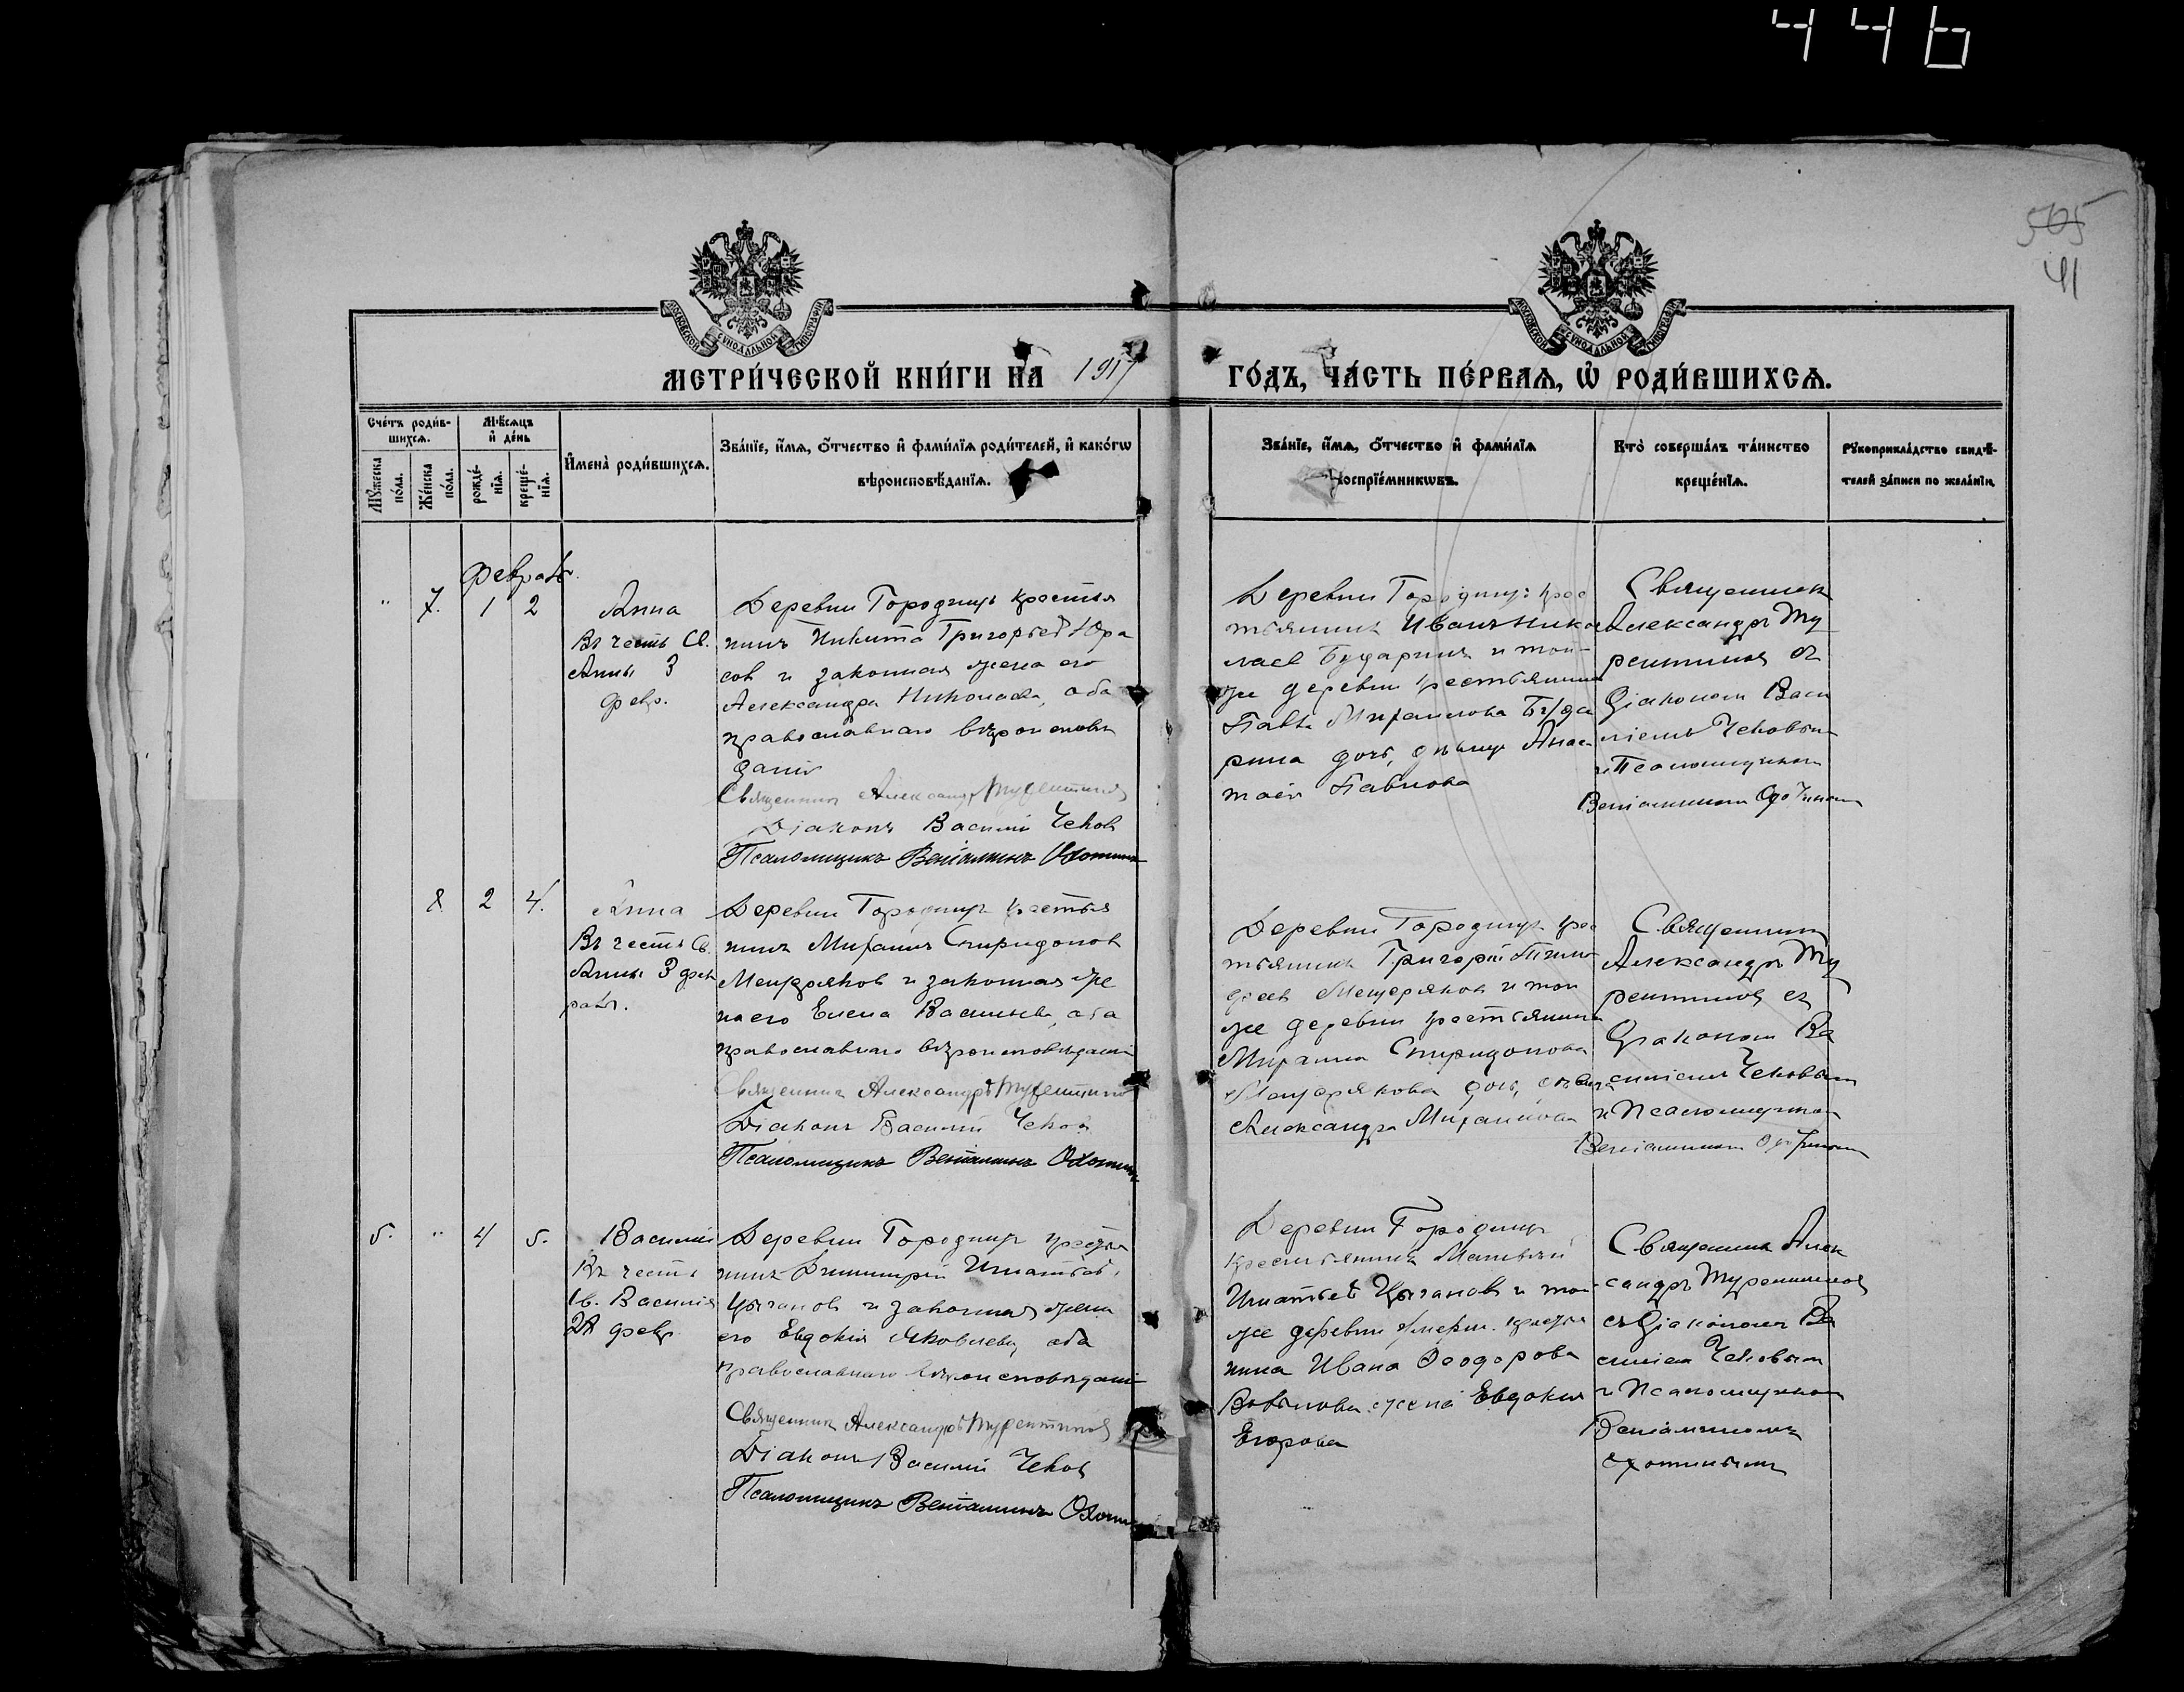 446
505
41
МОСКОВСКОЙ СѴНОДАЛЬНОЙ ТИПОГРАФІИ
МОСКОВСКОЙ СѴНОДАЛЬНОЙ ТИПОГРАФІИ
МЕТРИ́ЧЕСКОЙ КНИ́ГИ НА 1917 ГО́ДЪ, ЧА́СТЬ ПЕ́РВАЯ, Ѽ РОДИ́ВШИХСЯ.
Сче́тъ роди́в-
шихся.
Мꙋ́жеска
по́ла.
Же́нска
по́ла.
Мѣ́сяцъ
и҆ де́нь
рожде́-
нїя.
креще́-
нїя.
И҆мена̀ роди́вшихся.
Зва́нїе, и҆́мя, ѻ҆́тчество и҆ фами́лїя роди́телей, и҆ како́гѡ
вѣроисповѣ́данїя.
Зва́нїе, и҆́мя, ѻ҆́тчество и҆ фами́лїя
воспрїе́мникѡвъ.
Кто̀ соверша́лъ та́инство
креще́нїя.
Рꙋкоприкла́дство свидѣ́-
телей за́писи по жела́нїю.
Февраль.
" 7. 1 2
Анна
Въ честь Св.
Анны 3
февр.
Деревни Городищъ крестья
нинъ Никита Григорьев Юра
сов и законная жена его
Александра Николаева, оба
православнаго вѣроисповѣ
данія
Священникъ Александръ Турентинов
Діаконъ Василій Чеков
Псаломщикъ Веніаминъ Охотинъ
Деревни Городищъ крес
тьянинъ Иванъ Нико
лаев Бударинъ и той-
же деревни крестьянина
Павла Михаилова Буда
рина дочь, дѣвица Анас
тасія Павлова
Священник
Александръ Ту
рентинов съ
Діаконом Васи
ліемъ Чековым
и Псаломщиком
Веніамином Охотиным
8. 2 4.
Анна
Въ честь Св.
Анны 3 фев
раля.
Деревни Городищъ крестья
нинъ Михаилъ Спиридонов
Мещеряков и законная же
на его Елена Васильева, оба
православнаго вѣроисповѣданія
Священникъ Александръ Турентинов
Діаконъ Василій Чеков
Псаломщикъ Веніаминъ Охотинъ
Деревни Городищъ крес
тьянинъ Григорій Тимо
феев Мещеряков и той
же деревни крестьянина
Михаила Спиридонова
Мещерякова дочь, дѣвица
Александра Михаилова
Священник
Александръ Ту
рентинов съ
Діаконом Ва
силіемъ Чековым
и Псаломщиком
Веніамином Охотиным
5. " 4 5.
Василій
Въ честь
Св. Василія
28 февр.
Деревни Городищъ крестья
нинъ Димитрій Игнатьев.
Цыганов и законная жена
его Евдокія Яковлева, оба
православнаго вѣроисповѣданія
Священник Александръ Турентинов
Діаконъ Василій Чеков
Псаломщикъ Веніаминъ Охотинъ
Деревни Городищъ
крестьянинъ Матвѣй
Игнатьев Цыганов и той
же деревни крестья
нина Ивана Ѳеодорова
жена Евдокия
Егорова
Священник Алек
сандръ Турентинов
съ Діаконом Ва
силіем Чековым
и Псаломщиком
Веніамином
Охотиным